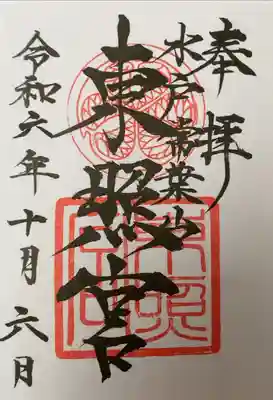 奉拝
水戸常葉山
東照宮
令和六年十月六日